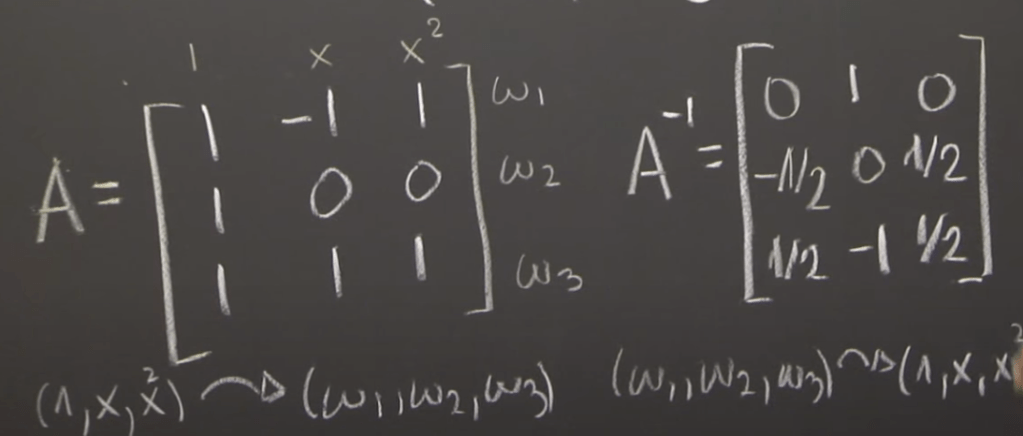 1 x x²
A = [ 1 -1 1 ] ω₁
1 0 0 ω₂
1 1 1 ω₃
A⁻¹ = [ 0 1 0 ]
-1/2 0 1/2
1/2 -1 1/2
(1, x, x²) ↷ (ω₁, ω₂, ω₃)
(ω₁, ω₂, ω₃) ↷ (1, x, x²